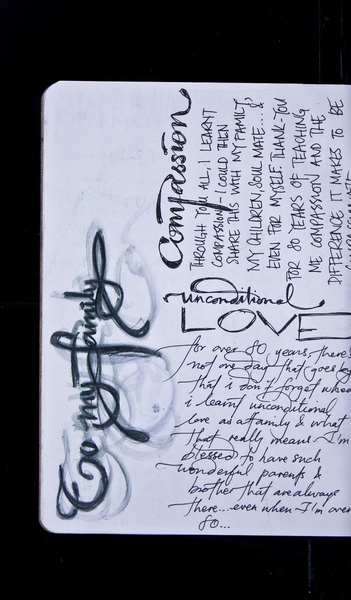 To my family
Compassion
THROUGH YOU ALL, I LEARNT
COMPASSION - I COULD THEN
SHARE THIS WITH MY FAMILY
MY CHILDREN, SOUL MATE....&
EVEN FOR MYSELF. THANK-YOU
FOR 80 YEARS OF TEACHING
ME COMPASSION AND THE
DIFFERENCE IT MAKES TO BE
unconditional
LOVE
for over 80 years, there's
not one day that goes by
that i don't forget when
i learnt unconditional
love as a family & what
that really meant. I'm
blessed to have such
wonderful parents &
brother that are always
there...even when I'm over
80...